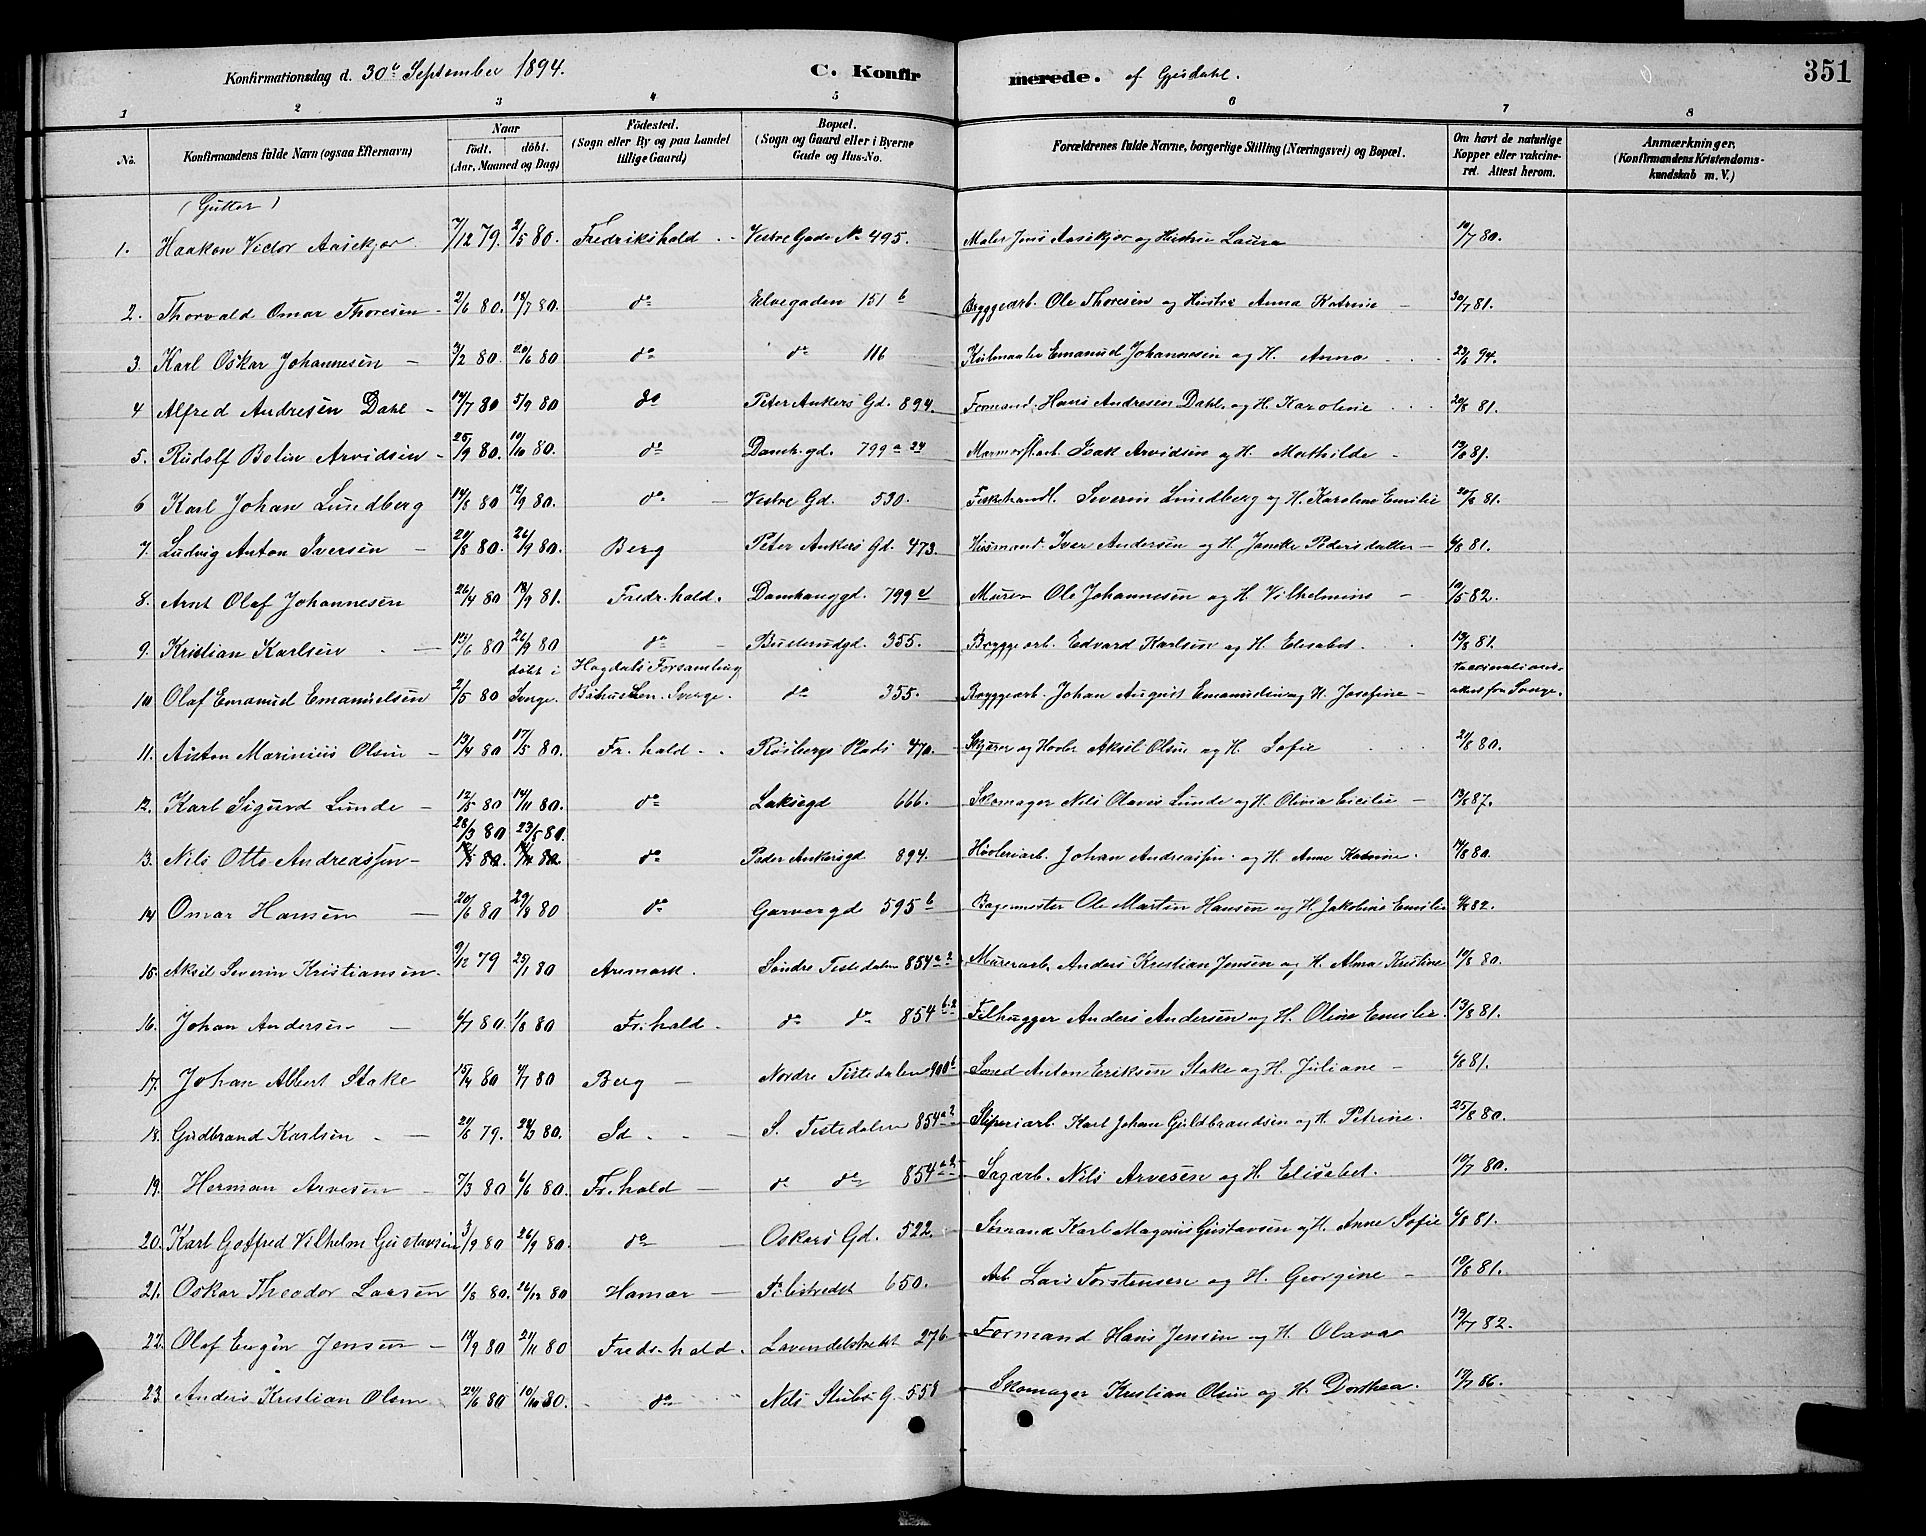 Konfirmationsdag d. 30te September 1894. C. Konfirmerede. af Gjesdahl. 351
1 2 3 4 5 6 7 8
No. Konfirmandens fulde Navn (ogsaa Efternavn) Naar født. døbt. (Aar, Maaned og Dag) Fødested. (Sogn eller By og paa Landet tillige Gaard) Bopæl. (Sogn og Gaard eller i Byerne Gade og Hus-No. Forældrenes fulde Navne, borgerlige Stilling (Næringsvei) og Bopæl. Om havt de naturlige Kopper eller vakcineret. Attest herom. Anmærkninger. (Konfirmandens Kristendomskundskab m. V.)
(Gutter)
1. Haakon Victor Aasekjær 7/12 79. 2/5 80. Fredrikshald Vestre Gade No 495. Maler Jens Aasekjær og Hustru Laura 10/7 80.
2. Thorvald Omar Thoresen 2/6 80. 18/7 80. do Elvegaden 151 b Bryggearb. Ole Thoresen og Hustru Anna Katrine 30/7 81.
3. Karl Oskar Johannesen 3/2 80. 20/6 80 do do 116 Kulmaaler Emanuel Johannesen og H. Anna 23/6 94.
4 Alfred Andresen Dahl 14/7 80 5/9 80 do Peter Ankers Gd. 894. Formand Hans Andresen Dahl og H. Karoline 20/8 81.
5. Rudolf Bolin Arvidsen 25/9 80. 10/10 80. do Damh. gd. 799 a 24 Marmorsl.arb. Isak Arvidsen og H. Mathilde 13/8 81.
6 Karl Johan Lundberg 14/8 80 12/9 80. do Vestre Gd. 530. Fiskehandl. Severin Lundberg og H. Karoline Emilie 20/8 81.
7. Ludvig Anton Iversen 29/8 80. 26/9 80. Berg Peter Ankers Gd. 473. Husmand Iver Andersen og H. Janike Pedersdatter 6/8 81.
8. Arnt Olaf Johannesen 26/4 80 18/9 81. Fredr.hald. Damhauggd. 799 d Murer Ole Johannesen og H. Vilhelmine 10/5 82.
9. Kristian Karlsen 13/6 80 26/9 80 do Busterudgd. 355. Brygge arb. Edvard Karlsen og H. Elisabet. 13/8 81.
10 Olaf Emanuel Emanuelsen 2/5 80 døbt i Sverge. Hogdals Forsamling Bahus Len. Sverge. do 355. Bryggearb. Johan August Emanuelsen og H. Josefine Vaccinationsattest fra Sverge.
11. Anton Marinius Olsen 13/4 80 17/5 80. Fr. hald Rösbergs Plads 470. Skjærer og Høvler Aksel Olsen og H. Sofie 21/8 80.
12. Karl Sigurd Lunde 12/5 80 14/11 80. do Laksegd 666. Skomager Nils Olavus Lunde og H. Olivia Cicilie 13/8 87.
28/3 80 23/5 80.
13. Nils Otto Andreassen do Peder Ankersgd 894. Høvleriarb. Johan Andreassen og H. Anne Katrine. 14/8 80.
14 Omar Hansen 20/6 80 29/8 80 do Garvergd 595 b Bagemester Ole Martin Hansen og H. Jakobine Emilie 82.
15. Aksel Severin Kristiansen 9/12 79 25/1 80 Aremark. Søndre Tistedalen 854 a 2 Murerarb. Anders Kristian Jensen og H. Alma Kristine 14/8 80.
16. Johan Andersen 6/7 80. 1/8 80 Fr. hald. do do 854 b 2 Filhugger Anders Andersen og H. Oline Emilie. 13/8 81.
17. Johan Albert Stake 15/4 80 4/7 80 Berg Nordre Tistedalen 900 b Smed Anton Eriksen Stake og H. Juliane 6/8 81.
18. Gudbrand Karlsen 79. 80. Id S. Tistedalen 854 a 2 Sliperiarb. Karl Johan Guldbrandsen og H. Petrine. 25/8 80.
19. Herman Arvesen 7/3 80 6/6 80. Fr. hald do do 854 a 2 Sagarb. Nils Arvesen og H. Elisabet. 10/7 80.
20. Karl Gotfred Vilhelm Gustavsen 3/9 80 26/9 80. do Oskars Gd. 522. Sømand Karl Magnus Gustavsen og H. Anne Sofie 6/8 81.
21. Oskar Theodor Larsen 1/8 80. 26/12 80 Hamar Filestredet 650. Arb. Lars Torstensen og H. Georgine 10/8 81.
22. Olaf Eugen Jensen 18/9 80 21/11 80 Fredr. hald. Lavendelstredet 276. Formand Hans Jensen og H. Olava 19/7 82.
23. Anders Kristian Olsen 24/6 80 10/10 80. do Nils Stubs G. 558 Skomager Kristian Olsen og H. Dorthea. 19/7 86.